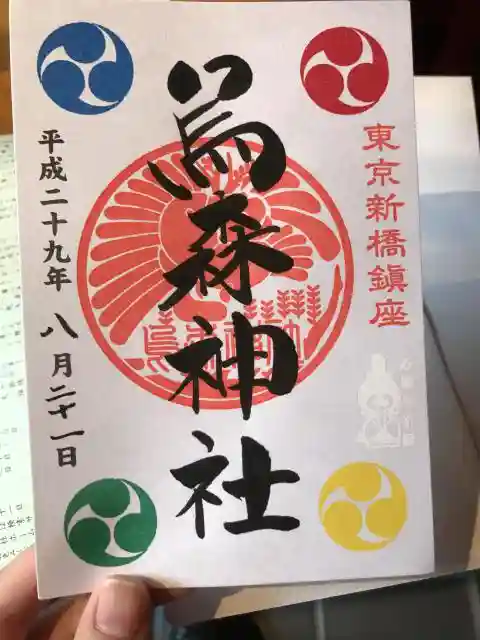 東京新橋鎮座
烏森神社
平成二十九年 八月二十一日